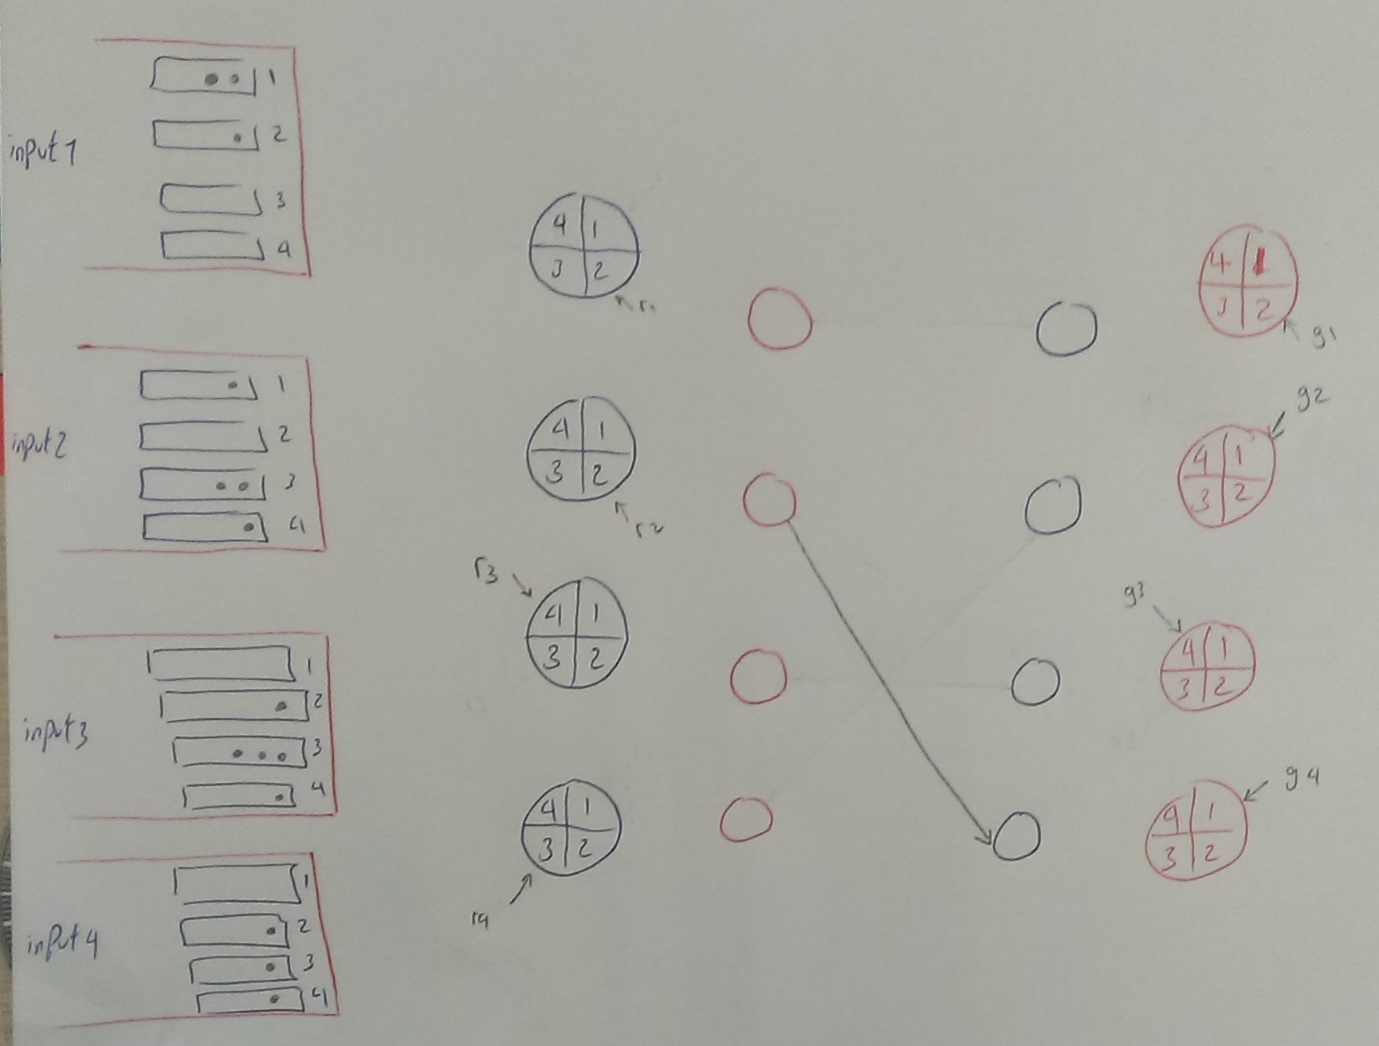 input 1
1
2
3
4
input 2
1
2
3
4
input 3
1
2
3
4
input 4
1
2
3
4
4 1
3 2
r1
4 1
3 2
r2
r3
4 1
3 2
4 1
3 2
r4
4 1
3 2
g1
g2
4 1
3 2
g3
4 1
3 2
g4
4 1
3 2